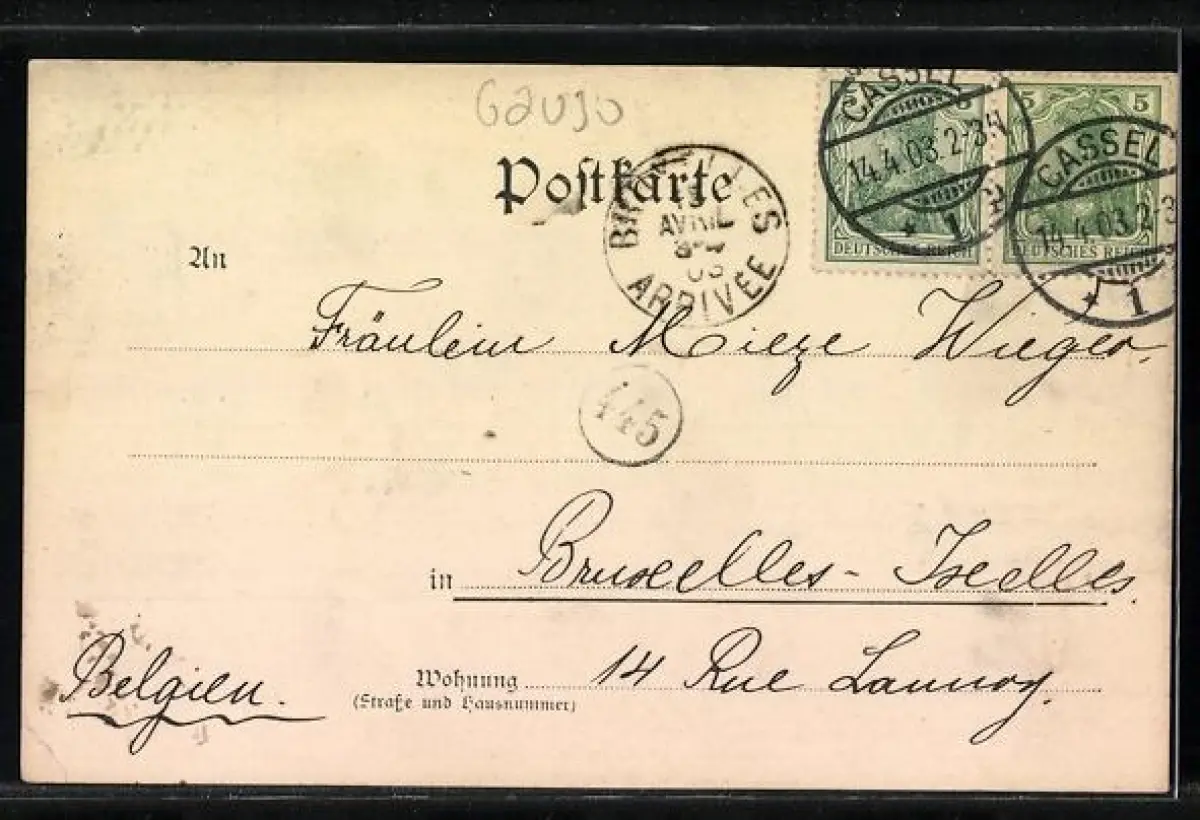 Postkarte
5 5
5
CASSEL
14.4.03. 2-3N
* 1
CASSEL
14.4.03. 2-3
* 1
DEUTSCHES REICH
DEUTSCHES REICH
BRUXELLES
AVRIL
03
ARRIVÉE
An
Fräulein Mieze Wieger.
445
in Bruxelles-Ixelles.
Belgien.
Wohnung 14 Rue Lannoy.
(Straße und Hausnummer)